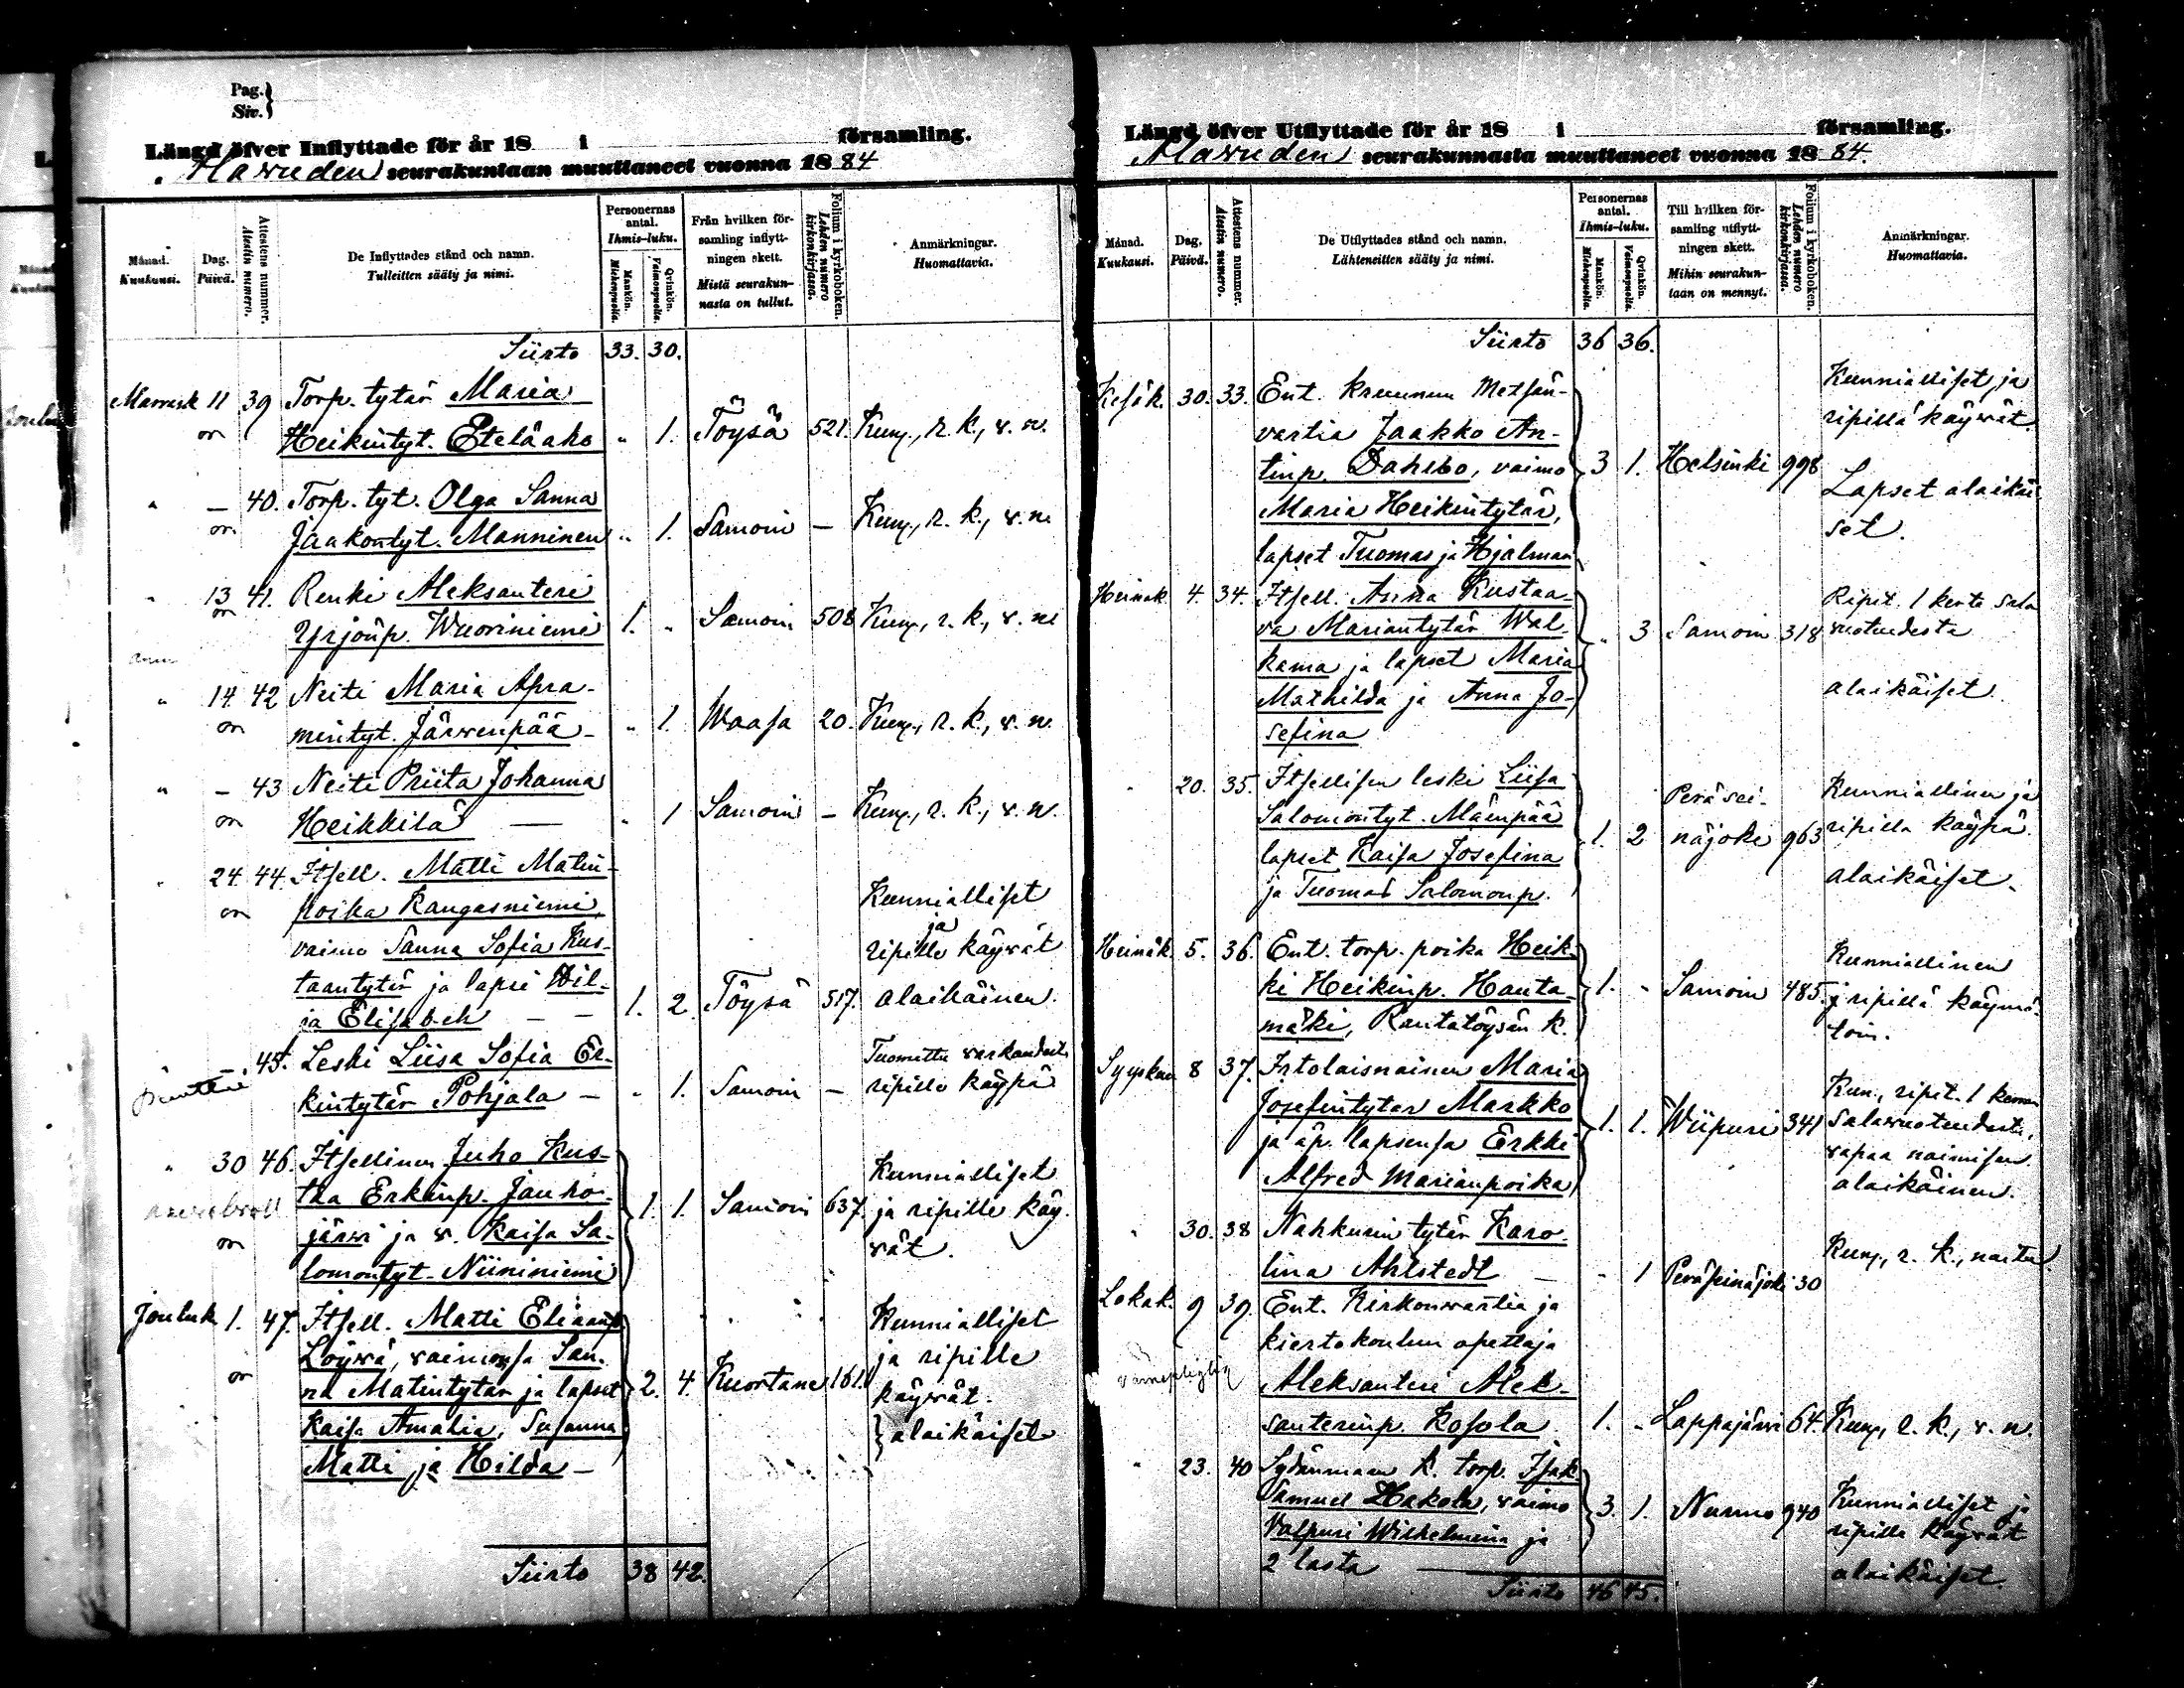 Pag.
Siv.
Längd öfver Inflyttade för år 18 i församling.
Alavuden seurakuntaan muuttaneet vuonna 1884
Månad.
Kuukausi.
Dag.
Päivä.
Attestens nummer.
Atestin numero.
De Inflyttades stånd och namn.
Tulleitten sääty ja nimi.
Personernas antal.
Ihmis-luku.
Mankön.
Miehenpuolia.
Qvinkön.
Vaimonpuolia.
Från hvilken för-
samling inflytt-
ningen skett.
Mistä seurakun-
nasta on tullut.
Folium i kyrkoboken.
Lehden numero
kirkonkirjassa.
Anmärkningar.
Huomattavia.
Siirto 33. 30.
Marrask 11 39 Torp. tytär Maria
Heikintyt. Eteläaho " 1. Töysä 521. Kunn., r. k., v. n.
" – 40. Torp. tyt. Olga Sanna
Jaakontyt. Manninen " 1. Samoin – Kunn., r. k., v. n.
" 13 41. Renki Aleksanteri
Yrjönp. Wuoriniemi 1. " Samoin 508 Kunn., r. k., v. n.
" 14 42 Neiti Maria Apra-
mintyt. Järwenpää – " 1. Waasa 20. Kunn., r. k., v. n.
" – 43 Neiti Priita Johanna
Heikkilä — " 1 Samoin – Kunn., r. k., v. n.
" 24 44. Itsell. Matti Matin-
poika Kangasniemi, Kunnialliset
vaimo Sanna Sofia Kus- ja ripille käywät
taantytär ja lapsi Wil-
ja Elisabeh – – 1. 2 Töysä 517. alaikäinen.
" – 45. Leski Liisa Sofia Er- Tuomittu varkaudesta
kintytär Pohjala – " 1. Samoin – ripille käypä
" 30 46. Itsellinen Juho Kus- Kunnialliset
taa Erkinp. Jauho- 1. 1. Samoin 637. ja ripille käy-
järwi ja v. Kaisa Sa- wät.
lomontyt. Niininiemi
Jouluk 1. 47. Itsell. Matti Eliaanp. Kunnialliset
Löywä, vaimonsa San- ja ripille
na Matintytär ja lapset 2. 4. Kuortane 161. käywät.
Kaisa Amalia, Susanna alaikäiset
Matti ja Hilda –
Siirto 38 42.
Längd öfver Utflyttade för år 18 i församling.
Alavuden seurakunnasta muuttaneet vuonna 1884.
Månad.
Kuukausi.
Dag.
Päivä.
Attestens nummer.
Atestin numero.
De Utflyttades stånd och namn.
Lähteneitten sääty ja nimi.
Personernas antal.
Ihmis-luku.
Mankön.
Miehenpuolia.
Qvinkön.
Vaimonpuolia.
Till hvilken för-
samling utflytt-
ningen skett.
Mihin seurakun-
taan on mennyt.
Folium i kyrkoboken.
Lehden numero
kirkonkirjassa.
Anmärkningar.
Huomattavia.
Siirto 36 36.
Kesäk. 30. 33. Ent. kruunun Metsän- Kunnialliset, ja
vartia Jaakko An- ripillä käywät.
tinp. Dahlbo, vaimo 3 1. Helsinki 998
Maria Heikintytär, Lapset alaikäi-
lapset Tuomas ja Hjalmar set.
Heinäk 4. 34. Itsell. Anna Kustaa- Ripit. 1 kerta sala
va Mariantytär Wal- " 3 Samoin 318 vuoteudesta
kama ja lapset Maria
Mathilda ja Anna Jo- alaikäiset.
sefina
" 20. 35. Itsellisen leski Liisa Peräsei- Kunniallinen ja
Salomontyt. Mäenpää 1. 2 näjoki 963 ripillä käypä.
lapset Kaisa Josefina
ja Tuomas Salomonp. alaikäiset.
Heinäk. 5. 36. Ent. torp. poika Heik- Kunniallinen
ki Heikinp. Hauta- 1. " Samoin 485. j ripillä käymä-
mäki, Rantatöysän k. töin.
Syyskuu 8 37. Irtolaisnainen Maria Kun., ripit. 1 kerran
Josefintytär Markko 1. 1. Wiipuri 341 salavuoteudesta,
ja äp. lapsensa Erkki vapaa naimisen.
Alfred Marianpoika alaikäinen.
" 30. 38 Nahkurin tytär Karo-
lina Ahlstedt – " 1 Peräseinäjoki 30 Kunn., r. k., naitu
Lokak. 9 39. Ent. Kirkonvartia ja
kiertokoulun opettaja
Aleksanteri Alek-
santerinp. Kosola 1. " Lappajärvi 64. Kunn., r. k., v. n.
" 23. 40 Sydänmaan k. torp. Isak Kunnialliset ja
Samuel Hakola, vaimo 3. 1. Nurmo 940 ripille käywät
Valpuri Wilhelmina ja
2 lasta — alaikäiset.
Siirto 46 45.